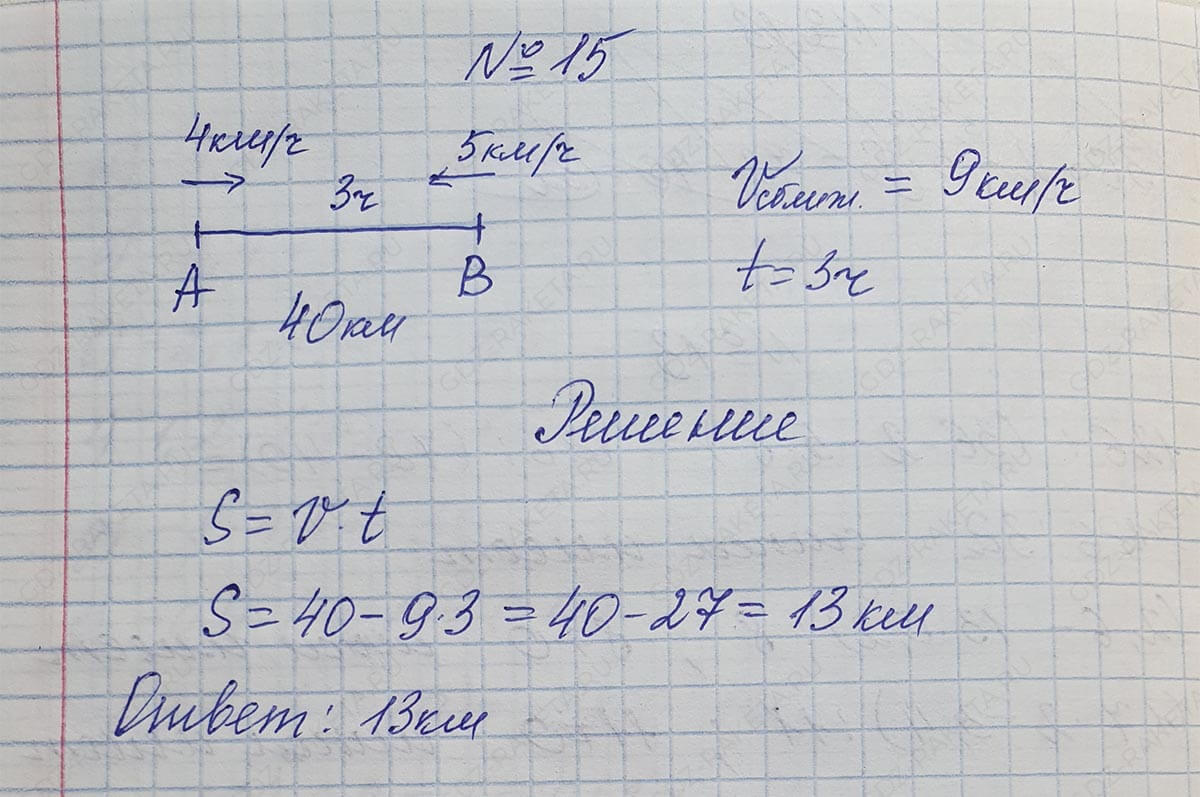 № 15
4км/ч 5км/ч
3ч
A B
40км
Vсближ. = 9км/ч
t = 3ч
Решение
S = v · t
S = 40 - 9·3 = 40 - 27 = 13 км
Ответ: 13км
GDZ-RAKETA.RU